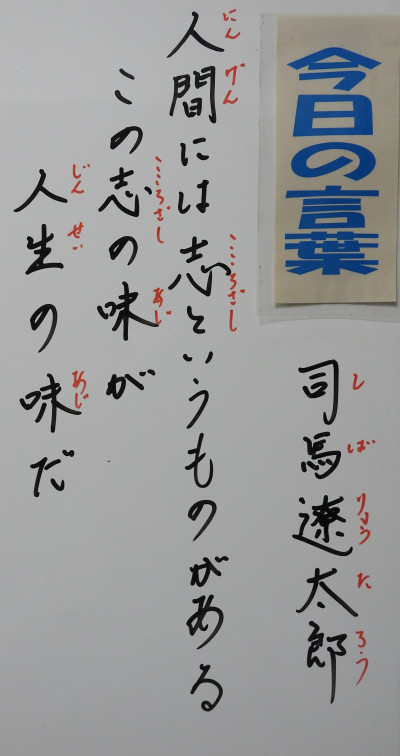 今日の言葉
司馬遼太郎
しばりょうたろう
人間には志というものがある
にんげん
こころざし
この志の味が
こころざし
あじ
人生の味だ
じんせい
あじ